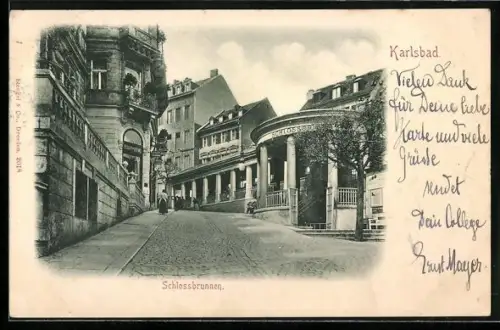 Karlsbad
Vielen Dank
für Deine liebe
Karte und viele
Grüße
sendet
Dein College
Ernst Mayer.
SCHLOSSBRUNN
Schlossbrunnen.
Stengel & Co., Dresden. 2018